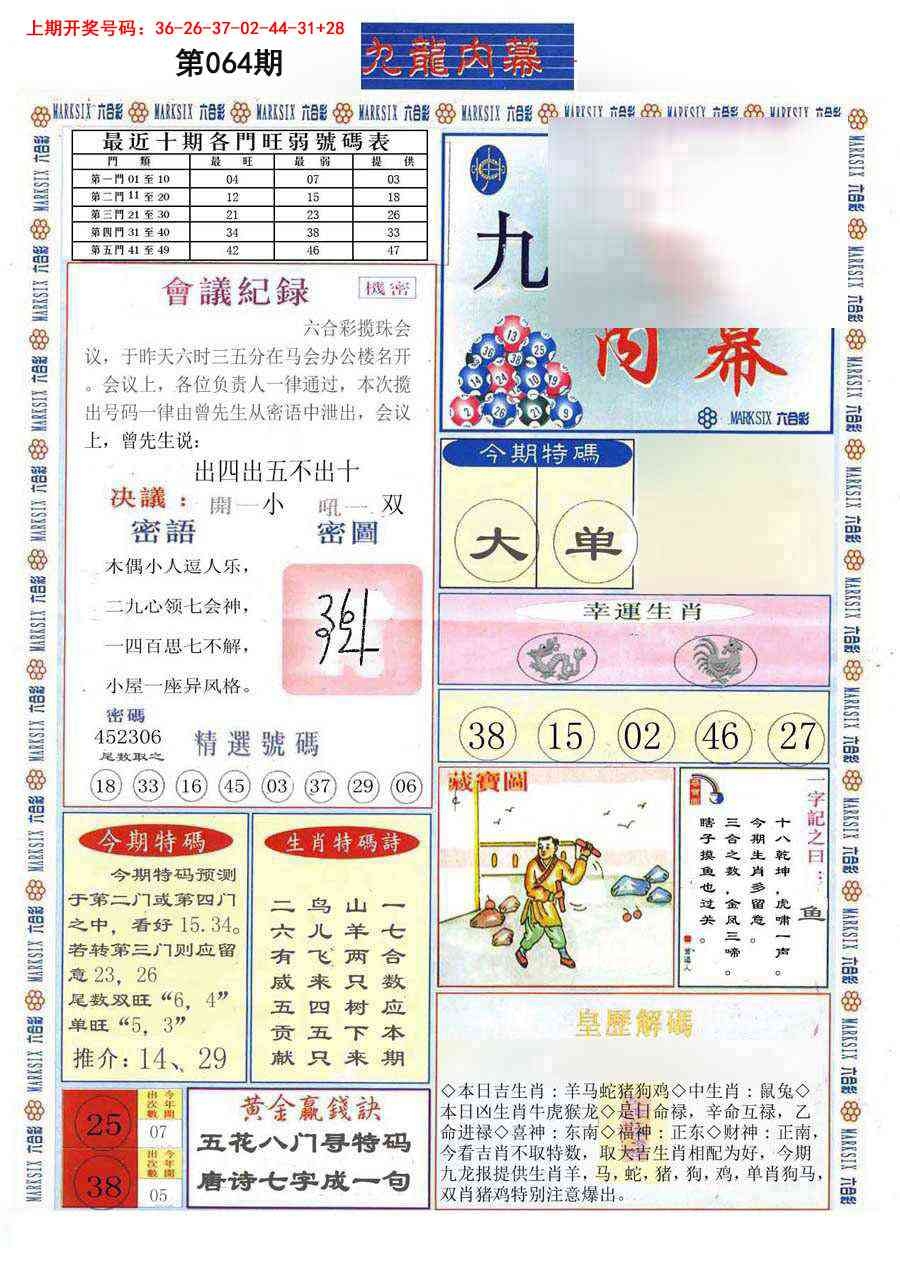 上期开奖号码：36-26-37-02-44-31+28
第064期
九龍内幕
MARKSIX 六合彩
最近十期各門旺弱號碼表
門類 最旺 最弱 提供
第一門 01 至 10 04 07 03
第二門 11 至 20 12 15 18
第三門 21 至 30 21 23 26
第四門 31 至 40 34 38 33
第五門 41 至 49 42 46 47
會議紀録
機密
六合彩揽珠会
议，于昨天六时三五分在马会办公楼名开
。会议上，各位负责人一律通过，本次揽
出号码一律由曾先生从密语中泄出，会议
上，曾先生说：
出四出五不出十
决議：開一小 吼一双
密語 密圖
木偶小人逗人乐，
二九心领七会神，
一四百思七不解，
小屋一座异风格。
密碼
452306
尾数取之
精選號碼
18 33 16 45 03 37 29 06
九
内幕
13
36 38 25
14 24 10 19
2 26 21 9
MARKSIX 六合彩
今期特碼
大 单
幸運生肖
38 15 02 46 27
藏寶圖
一字記之曰：鱼
十八乾坤，虎啸一声。
今期生肖多留意。
三合之数，金凤三啼。
瞎子摸鱼也过关。
曾道人
今期特碼
今期特码预测
于第二门或第四门
之中，看好 15.34。
若转第三门则应留
意 23，26
尾数双旺“6，4”
单旺“5，3”
推介：14、29
生肖特碼詩
一七合数应本期
山羊两只树下来
鸟儿飞来四五只
二六有威五贡献
25
今年開出次數
07
38
今年開出次數
05
黄金赢錢訣
五花八门寻特码
唐诗七字成一句
皇歷解碼
◇本日吉生肖：羊马蛇猪狗鸡◇中生肖：鼠兔◇
本日凶生肖牛虎猴龙◇是日命禄，辛命互禄，乙
命进禄◇喜神：东南◇福神：正东◇财神：正南，
今看吉肖不取特数，取大吉生肖相配为好，今期
九龙报提供生肖羊，马，蛇，猪，狗，鸡，单肖狗马，
双肖猪鸡特别注意爆出。